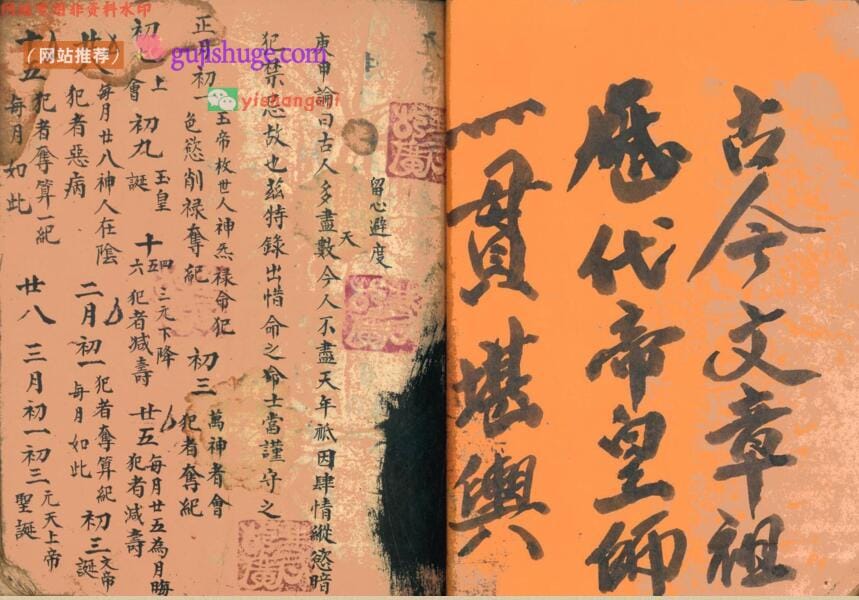 古今文章祖
歷代帝皇師
三貫堪輿
留心避度
庚申論曰古人多盡數天今人不盡天年祇因肆情縱慾暗
犯禁忌故也茲特錄出惜命之士當謹守之
正月初一玉帝校世人神炁祿命犯
色慾削祿奪紀 初三萬神者會
犯者奪紀
初七上會 初九玉皇誕 十四十五十六三元下降
犯者減壽 廿五每月廿五為月晦
犯者減壽
廿八每月廿八神人在陰
犯者惡病 二月初一犯者奪算紀
每月如此 初三文帝誕
十五犯者奪算一紀
每月如此 廿八 三月初一初三元天上帝
聖誕
(网站推荐)
gujishuge.com